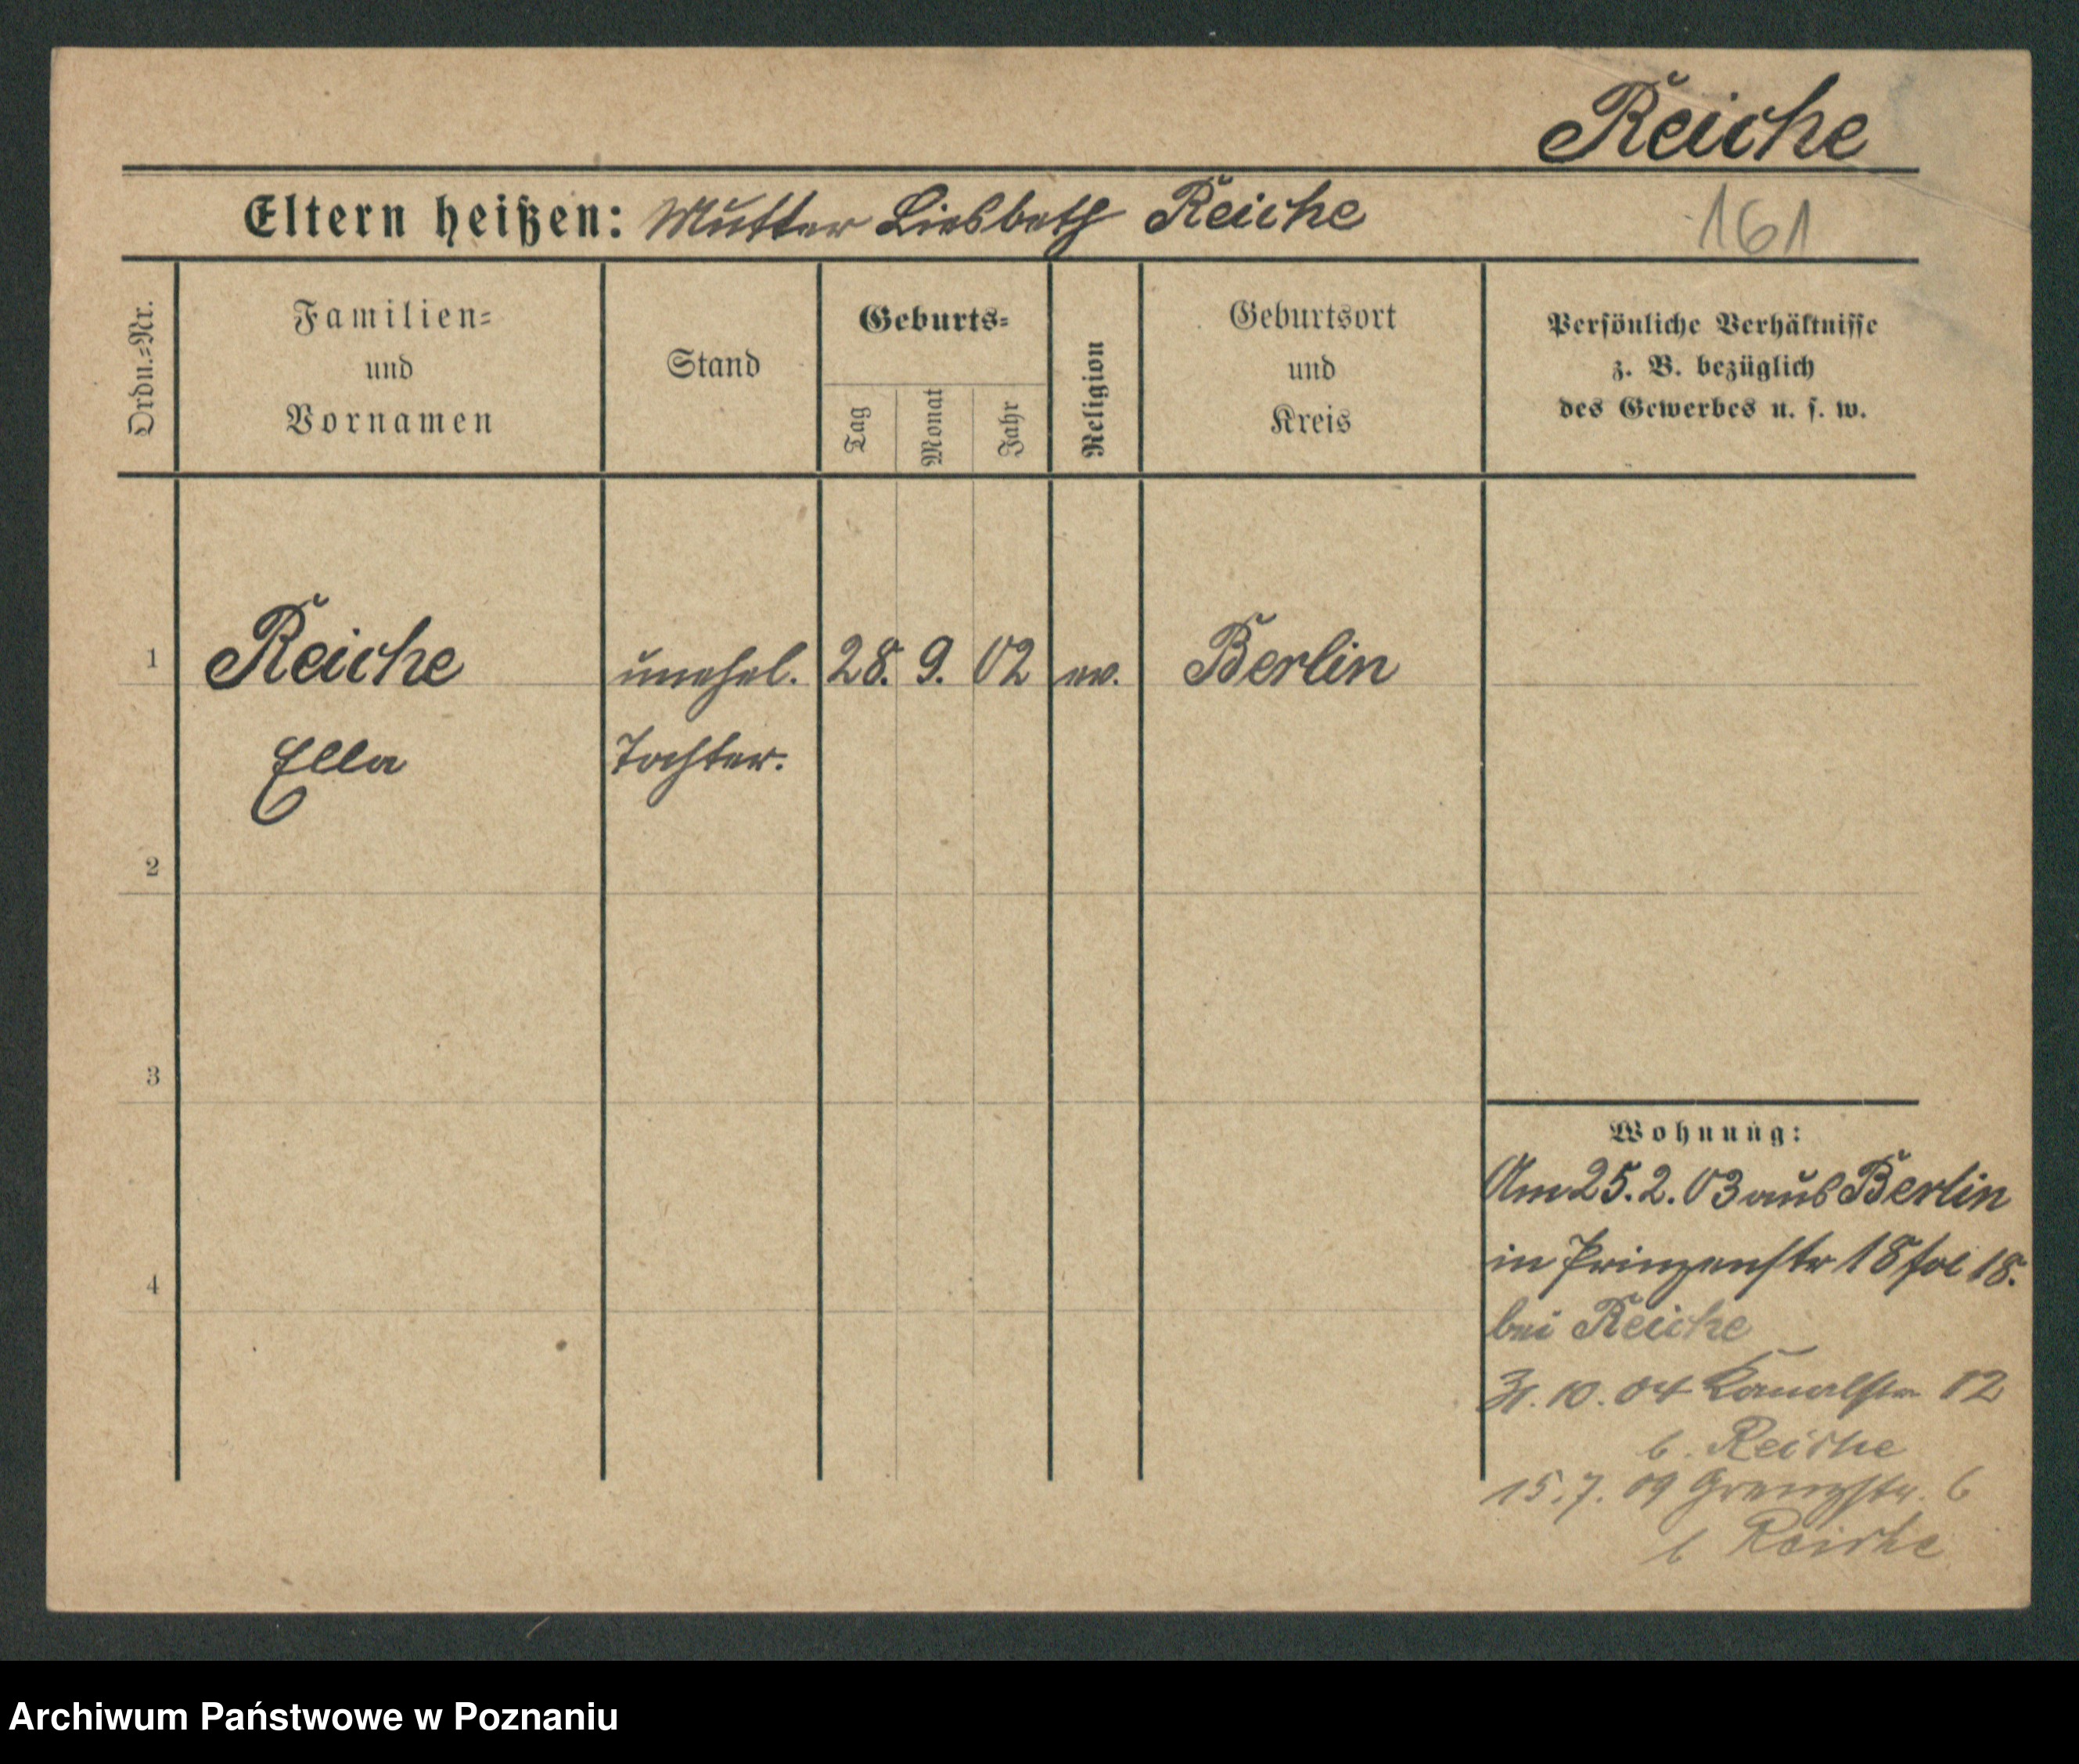 Reiche
Eltern heißen: Mutter Liesbeth Reiche
161
Ordn.=Nr.
Familien=
und
Vornamen
Stand
Geburts=
Tag
Monat
Jahr
Religion
Geburtsort
und
Kreis
Persönliche Verhältnisse
z. B. bezüglich
des Gewerbes u. s. w.
1 Reiche unehel. 28. 9. 02 ev. Berlin
Ella Tochter.
2
3
4
Wohnung:
Am 25.2.03 aus Berlin
in Prinzenstr 18 fol 18.
bei Reiche
10. 04 Kanalstr 12
b. Reiche
15.7.09 Grenzstr. 6
b Reiche
Archiwum Państwowe w Poznaniu